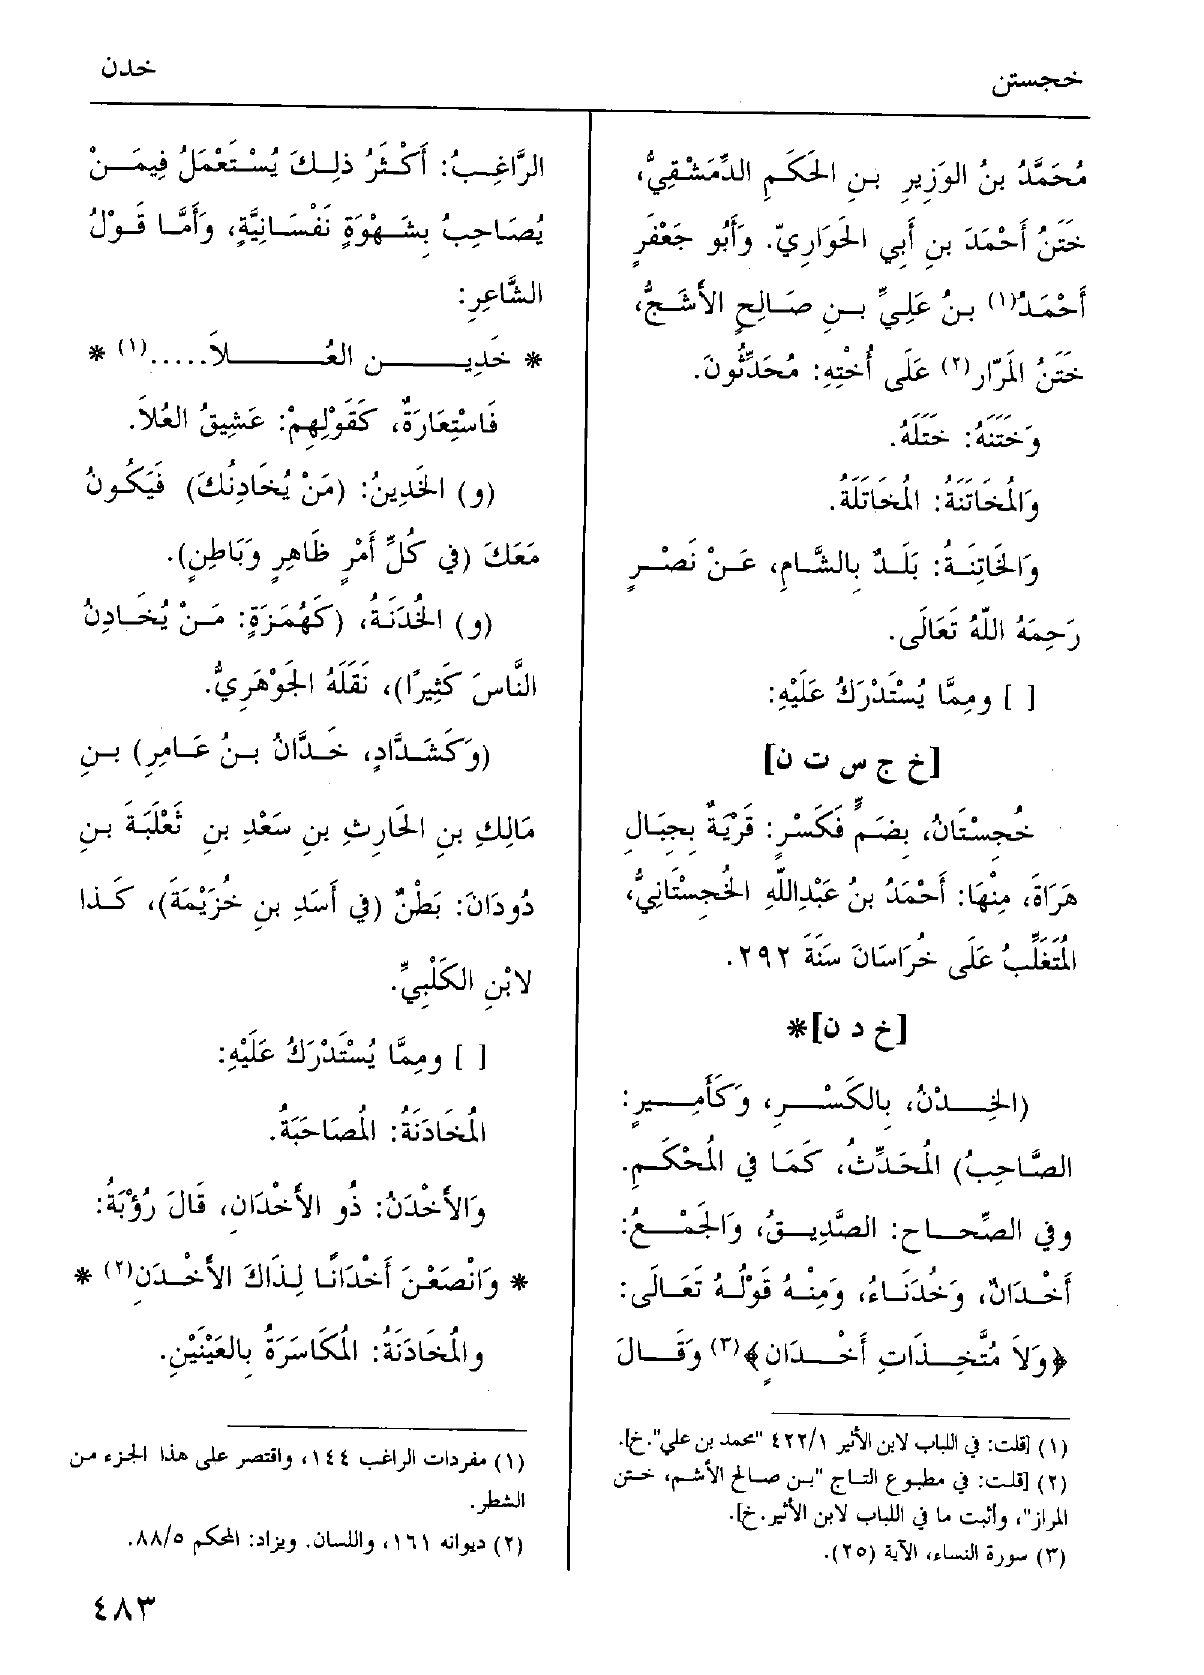 خجستن
خدن
مُحَمَّدُ بنُ الوَزِيرِ بنِ الحَكَمِ الدِّمَشْقِيُّ،
خَتَنُ أَحْمَدَ بنِ أَبي الحَوَارِيّ. وَأَبُو جَعْفَرٍ
أَحْمَدُ(١) بنُ عَلِيِّ بنِ صَالِحٍ الأَشَجُّ،
خَتَنُ المَرّار(٢) عَلَى أُخْتِهِ: مُحَدِّثُونَ.
وَخَتَنَهُ: خَتَلَهُ.
وَالمُخَاتَنَةُ: المُخَاتَلَةُ.
وَالخَاتِنَةُ: بَلَدٌ بِالشَّامِ، عَنْ نَصْرٍ
رَحِمَهُ اللهُ تَعَالَى.
[ ] ومِمَّا يُسْتَدْرَكُ عَلَيْهِ:
[خ ج س ت ن]
خُجِسْتَانُ، بِضَمٍّ فَكَسْرٍ: قَرْيَةٌ بِجِبَالِ
هَرَاةَ، مِنْهَا: أَحْمَدُ بنُ عَبْدِاللهِ الخُجِسْتَانِيُّ،
المُتَغَلِّبُ عَلَى خُرَاسَانَ سَنَةَ ٢٩٢.
[خ د ن]*
(الخِدْنُ، بِالكَسْرِ، وَكَأَمِيرٍ:
الصَّاحِبُ) المُحَدِّثُ، كَمَا في المُحْكَمِ.
وفي الصِّحَاحِ: الصَّدِيقُ، وَالجَمْعُ:
أَخْدَانٌ، وَخُدَنَاءُ، وَمِنْهُ قَوْلُهُ تَعَالَى:
﴿وَلاَ مُتَّخِذَاتِ أَخْدَانٍ﴾(٣) وَقَالَ
(١) [قلت: في اللباب لابن الأثير ٤٢٢/١ "محمد بن علي".خ].
(٢) [قلت: في مطبوع التاج "بن صالح الأشم، ختن
المراز"، وأثبت ما في اللباب لابن الأثير.خ].
(٣) سورة النساء، الآية (٢٥).
الرَّاغِبُ: أَكْثَرُ ذلِكَ يُسْتَعْمَلُ فِيمَنْ
يُصَاحِبُ بِشَهْوَةٍ نَفْسَانِيَّةٍ، وَأَمَّا قَوْلُ
الشَّاعِرِ:
* خَدِينِ العُلاَ.....(١) *
فَاسْتِعَارَةٌ، كَقَوْلِهِمْ: عَشِيقُ العُلاَ.
(و) الخَدِينُ: (مَنْ يُخَادِنُكَ) فَيَكُونُ
مَعَكَ (في كُلِّ أَمْرٍ ظَاهِرٍ وَبَاطِنٍ).
(و) الخُدَنَةُ، (كَهُمَزَةٍ: مَنْ يُخَادِنُ
النَّاسَ كَثِيرًا)، نَقَلَهُ الجَوْهَرِيُّ.
(وَكَشَدَّادٍ، خَدَّانُ بنُ عَامِرِ) بنِ
مَالِكِ بنِ الحَارِثِ بنِ سَعْدِ بنِ ثَعْلَبَةَ بنِ
دُودَانَ: بَطْنٌ (في أَسَدِ بنِ خُزَيْمَةَ)، كَذا
لابْنِ الكَلْبِيِّ.
[ ] ومِمَّا يُسْتَدْرَكُ عَلَيْهِ:
المُخَادَنَةُ: المُصَاحَبَةُ.
وَالأَخْدَنُ: ذُو الأَخْدَانِ، قَالَ رُؤْبَةُ:
* وَانْصَعْنَ أَخْدَانًا لِذَاكَ الأَخْدَنِ(٢) *
والمُخَادَنَةُ: المُكَاسَرَةُ بِالعَيْنَيْنِ.
(١) مفردات الراغب ١٤٤، واقتصر على هذا الجزء من
الشطر.
(٢) ديوانه ١٦١، واللسان. ويزاد: المحكم ٨٨/٥.
٤٨٣